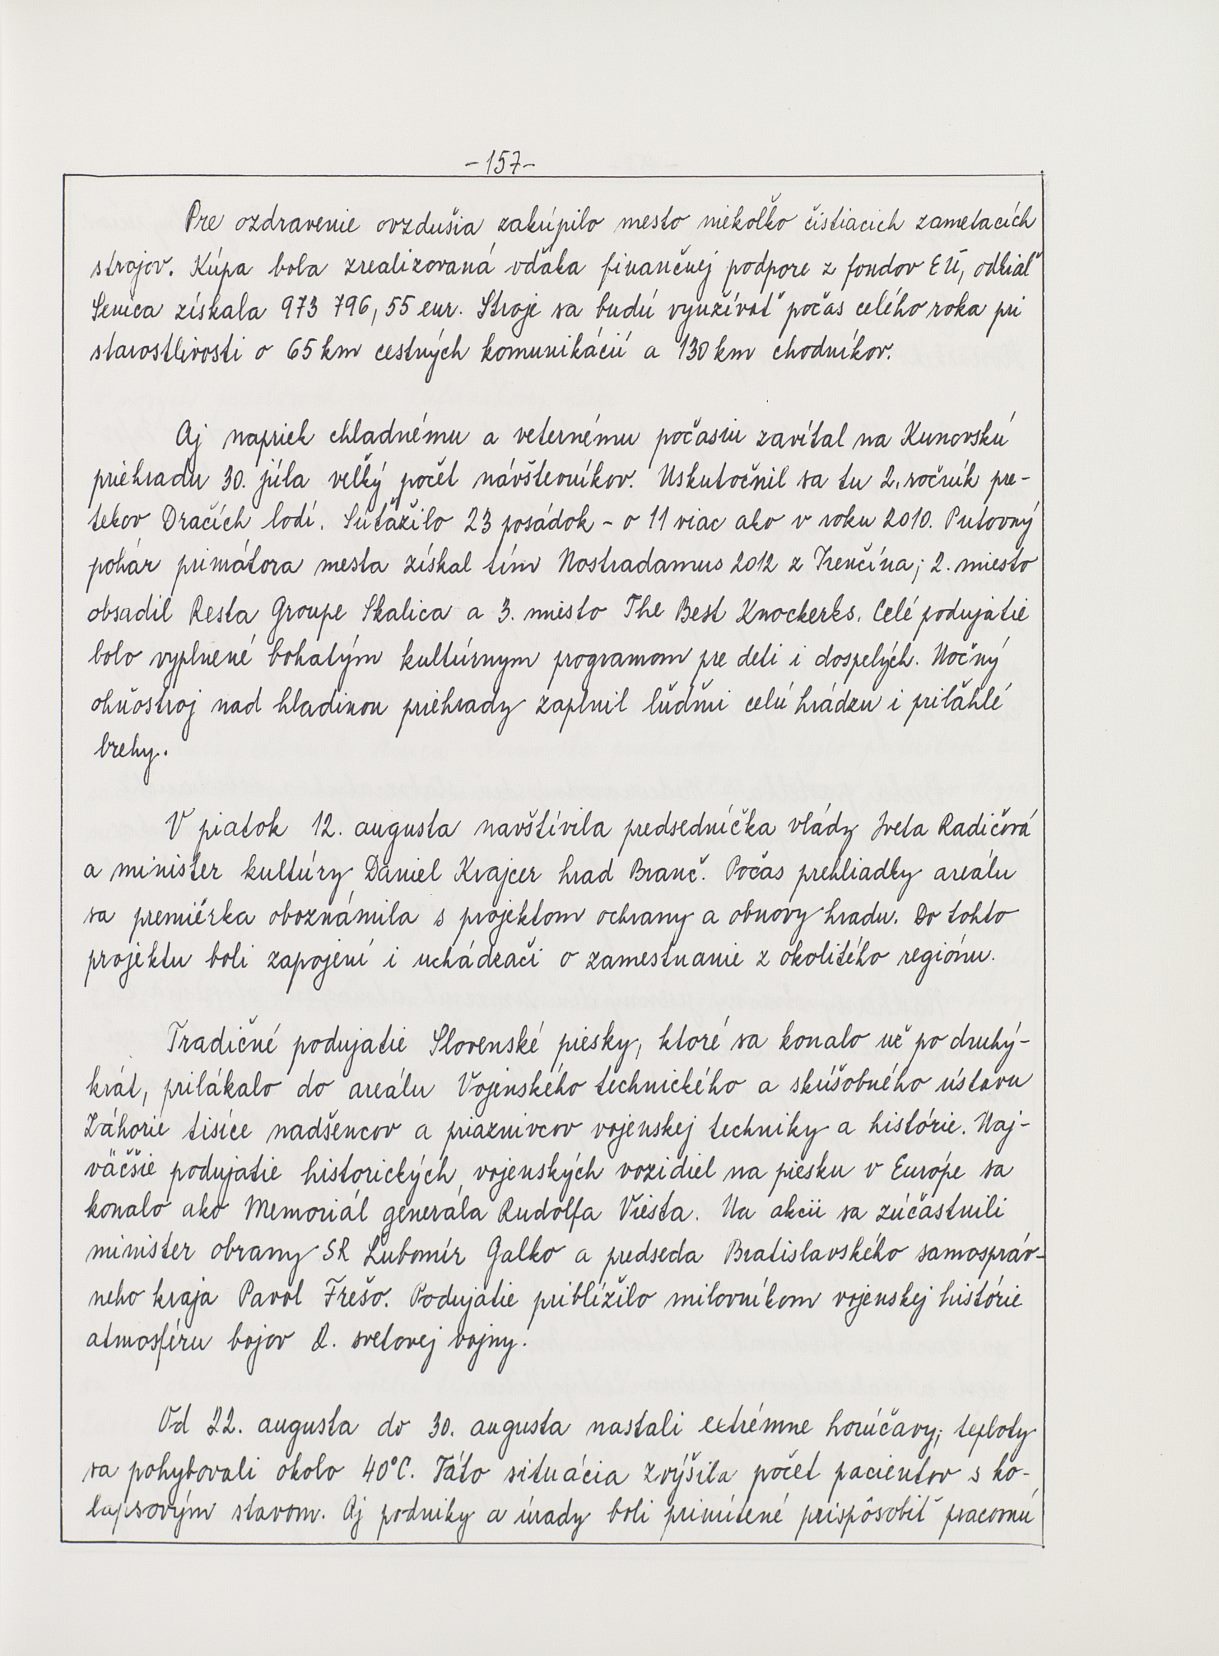 -157-
Pre ozdravenie ovzdušia zakúpilo mesto niekoľko čistiacich zametacích
strojov. Kúpa bola zrealizovaná vďaka finančnej podpore z fondov EÚ, odkiaľ
Senica získala 973 796,55 eur. Stroje sa budú využívať počas celého roka pri
starostlivosti o 65 km cestných komunikácií a 130 km chodníkov.
Aj napriek chladnému a veternému počasiu zavítal na Kunovskú
priehradu 30. júla veľký počet návštevníkov. Uskutočnil sa tu 2. ročník pre-
tekov Dračích lodí. Súťažilo 23 posádok - o 11 viac ako v roku 2010. Putovný
pohár primátora mesta získal tím Nostradamus 2012 z Trenčína; 2. miesto
obsadil Resta Groupe Skalica a 3. miesto The Best Knockerks. Celé podujatie
bolo vyplnené bohatým kultúrnym programom pre deti i dospelých. Nočný
ohňostroj nad hladinou priehrady zaplnil ľuďmi celú hrádzu i priľahlé
brehy.
V piatok 12. augusta navštívila predsedníčka vlády Iveta Radičová
a minister kultúry Daniel Krajcer hrad Branč. Počas prehliadky areálu
sa premiérka oboznámila s projektom ochrany a obnovy hradu. Do tohto
projektu boli zapojení i uchádzači o zamestnanie z okolitého regiónu.
Tradičné podujatie Slovenské piesky, ktoré sa konalo už po druhý-
krát, prilákalo do areálu Vojenského technického a skúšobného ústavu
Záhorie tisíce nadšencov a priaznivcov vojenskej techniky a histórie. Naj-
väčšie podujatie historických vojenských vozidiel na piesku v Európe sa
konalo ako Memoriál generála Rudolfa Viesta. Na akcii sa zúčastnili
minister obrany SR Ľubomír Galko a predseda Bratislavského samospráv-
neho kraja Pavol Frešo. Podujatie priblížilo milovníkom vojenskej histórie
atmosféru bojov 2. svetovej vojny.
Od 22. augusta do 30. augusta nastali extrémne horúčavy, teploty
sa pohybovali okolo 40°C. Táto situácia zvýšila počet pacientov s ko-
lapsovým stavom. Aj podniky a úrady boli prinútené prispôsobiť pracovnú